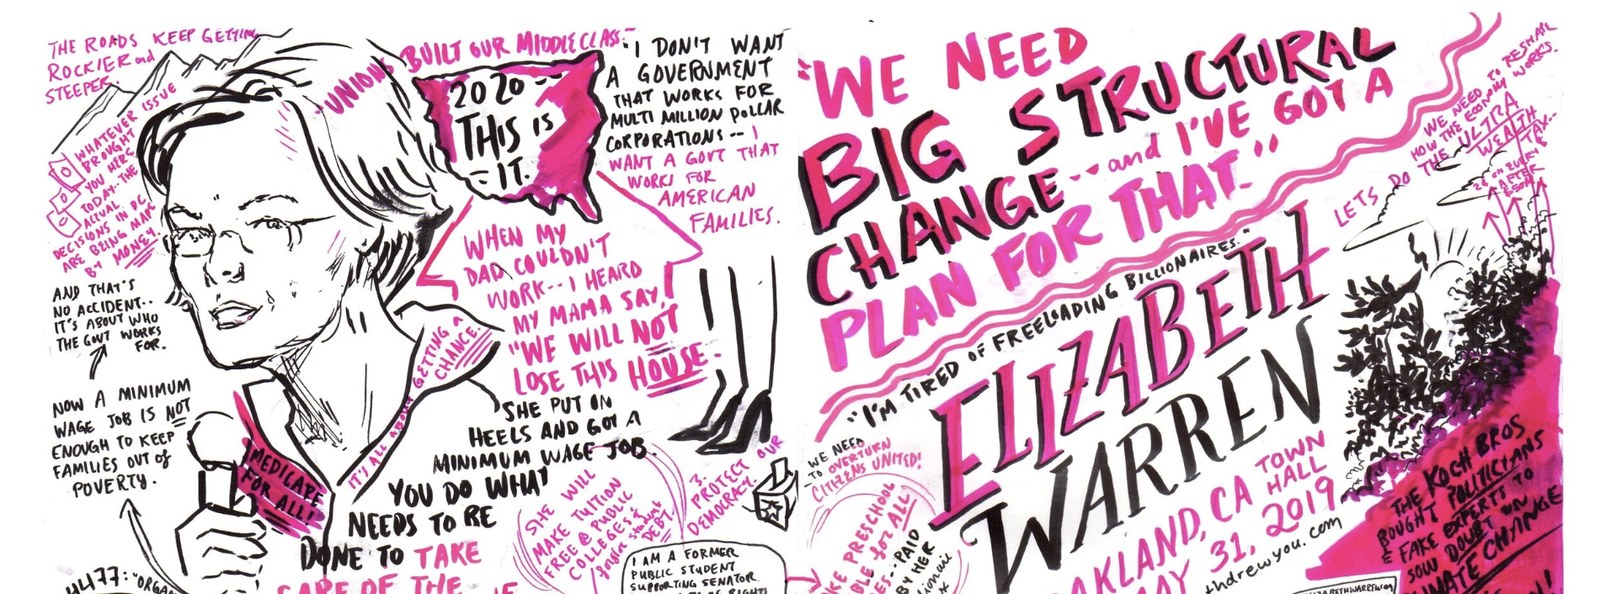 THE ROADS KEEP GETTING
ROCKIER and
STEEPER.
WHATEVER ISSUE
BROUGHT
YOU HERE
TODAY--THE
ACTUAL
DECISIONS IN DC
ARE BEING MADE
BY MONEY.
AND THAT'S
NO ACCIDENT..
IT'S ABOUT WHO
THE GOVT WORKS
FOR.
NOW A MINIMUM
WAGE JOB IS NOT
ENOUGH TO KEEP
FAMILIES OUT of
POVERTY.
44477: "ORGAN
MEDICARE
FOR ALL!
IT'S ALL ABOUT GETTING A
CHANCE.
"UNIONS BUILT OUR MIDDLE CLASS."
2020--
THIS IS
IT.
"I DON'T WANT
A GOVERNMENT
THAT WORKS FOR
MULTI MILLION DOLLAR
CORPORATIONS-- I
WANT A GOVT THAT
WORKS FOR
AMERICAN
FAMILIES.
WHEN MY
DAD COULDN'T
WORK--I HEARD
MY MAMA SAY,
"WE WILL NOT
LOSE THIS HOUSE.
SHE PUT ON
HEELS AND GOT A
MINIMUM WAGE JOB.
YOU DO WHAT
NEEDS TO BE
DONE TO TAKE
CARE OF THE
SHE WILL
MAKE TUITION
FREE @ PUBLIC
COLLEGES &
student
DEBT.
3.
PROTECT OUR
DEMOCRACY.
I AM A FORMER
PUBLIC STUDENT
SUPPORTING SENATOR
"WE NEED
BIG STRUCTURAL
CHANGE--and I'VE GOT A
PLAN FOR THAT."
"I'M TIRED OF FREELOADING BILLIONAIRES."
ELIZABETH
WARREN
OAKLAND, CA TOWN
HALL
MAY 31, 2019
thdrewyou.com
WE NEED
TO OVERTURN
CITIZENS UNITED!
PRESCHOOL
for ALL!
PAID
BY HER
WE NEED TO RESHAPE
HOW THE ECONOMY WORKS.
LETS DO THE ULTRA
WEALTH
TAX--
THE KOCH BROS
BOUGHT POLITICIANS
& FAKE EXPERTS TO
SOW DOUBT ON
CLIMATE CHANGE